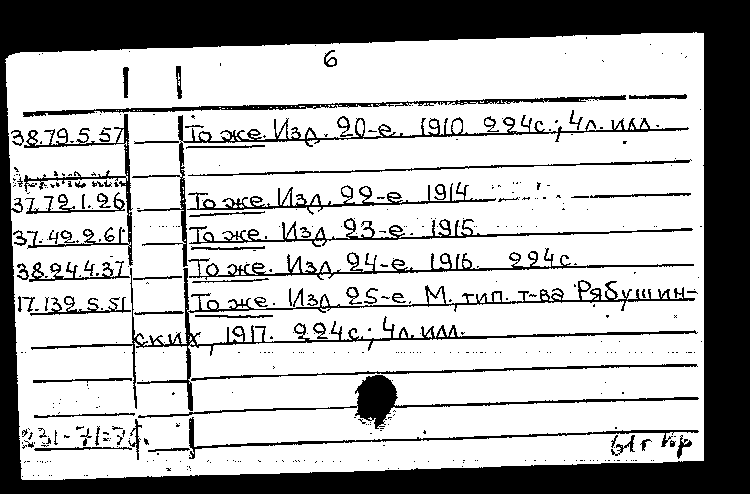 6
38.79.5.57 То же. Изд. 20-е. 1910. 224с.; 4л. илл.
37.72.1.26 То же. Изд. 22-е. 1914.
37.42.2.61 То же. Изд. 23-е. 1915.
38.24.4.37 То же. Изд. 24-е. 1916. 224с.
17.132.5.51 То же. Изд. 25-е. М., тип. т-ва Рябушин-
ских, 1917. 224с.; 4л. илл.